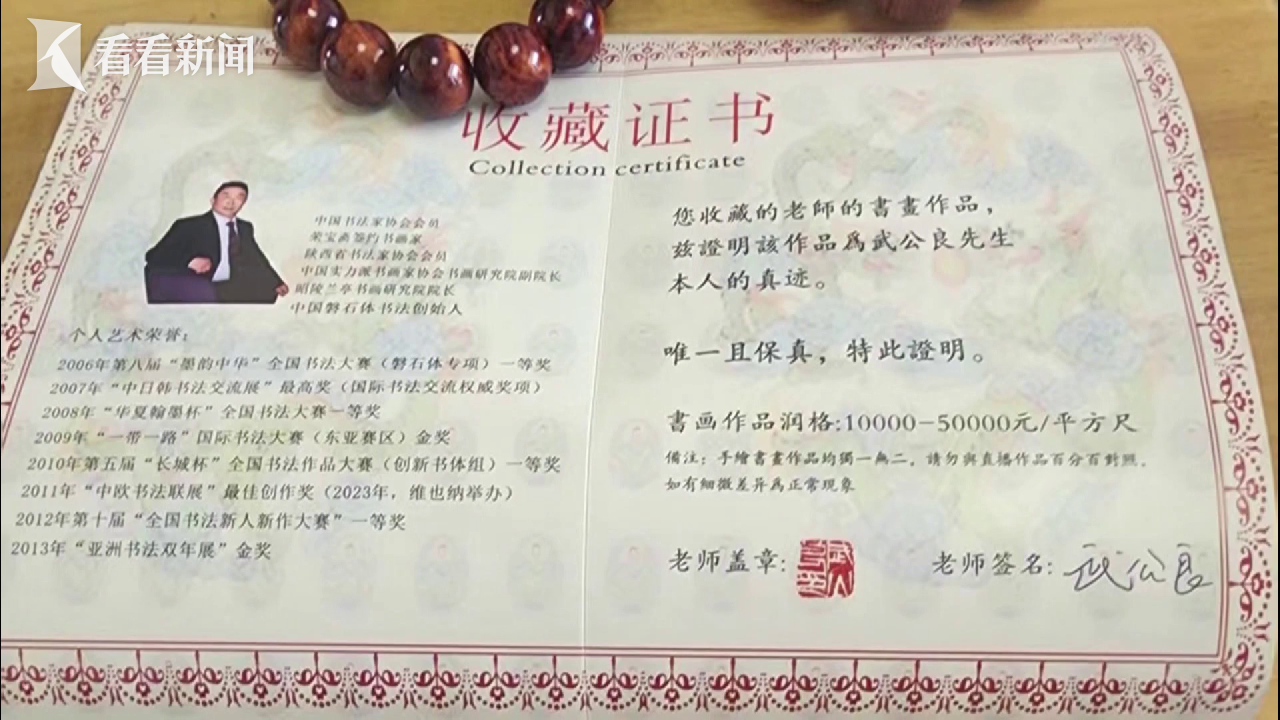 看看新闻
收藏证书
Collection certificate
中国书法家协会会员
荣宝斋签约书画家
陕西省书法家协会会员
中国实力派书画家协会书画研究院副院长
昭陵兰亭书画研究院院长
中国磐石体书法创始人
个人艺术荣誉：
2006年第八届“墨韵中华”全国书法大赛（磐石体专项）一等奖
2007年“中日韩书法交流展”最高奖（国际书法交流权威奖项）
2008年“华夏翰墨杯”全国书法大赛一等奖
2009年“一带一路”国际书法大赛（东亚赛区）金奖
2010年第五届“长城杯”全国书法作品大赛（创新书体组）一等奖
2011年“中欧书法联展”最佳创作奖（2023年，维也纳举办）
2012年第十届“全国书法新人新作大赛”一等奖
2013年“亚洲书法双年展”金奖
您收藏的老師的書畫作品，
兹證明該作品爲武公良先生
本人的真迹。
唯一且保真，特此證明。
書画作品润格:10000-50000元/平方尺
備注：手繪書畫作品均獨一無二，請勿與直播作品百分百對照，
如有細微差异爲正常現象
老师盖章:
老师签名: 武公良